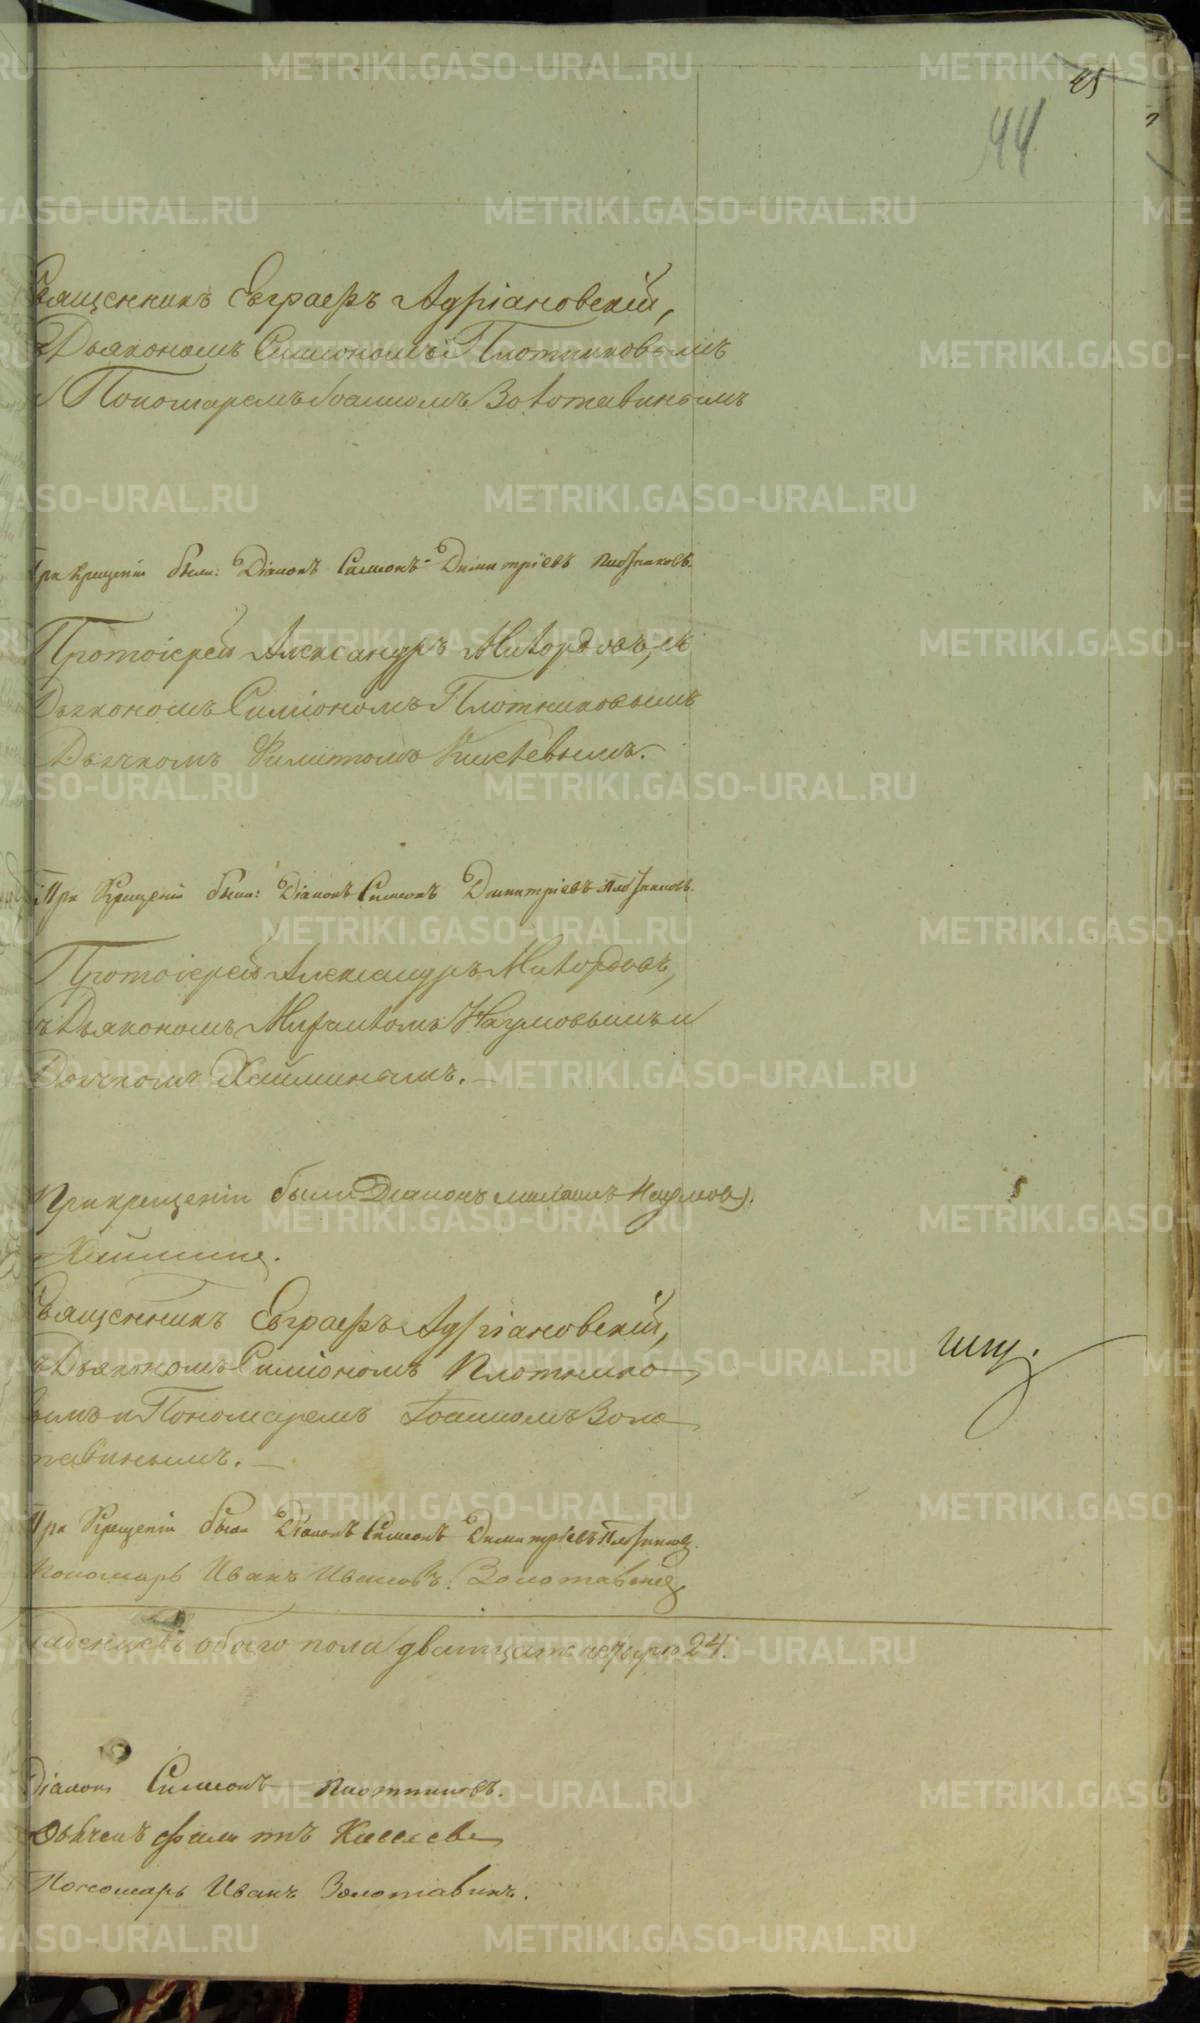 45
44
Священникъ Евграфъ Адріановскій,
Дьякономъ Симіономъ Плотниковымъ
Пономаремъ Іоанномъ Золотавинымъ
При крещеніи были: Діаконъ Симеонъ Димитріевъ Плотниковъ.
Протоіерей Александръ Милордовъ, съ
Дьякономъ Симіономъ Плотниковымъ
Дьячкомъ Филитомъ Киселевымъ.
При Крещеніи были: Діаконъ Симеонъ Димитріевъ Плотниковъ.
Протоіерей Александръ Милордовъ,
съ Дьякономъ Михаиломъ Наумовымъ и
Дьячкомъ Хайминымъ.
При крещеніи были Діаконъ Михаилъ Наумовъ.
Хайминъ.
Священникъ Евграфъ Адріановскій,
съ Дьякономъ Симіономъ Плотнико
вымъ и Пономаремъ Іоанномъ Золо
тавинымъ.
При Крещеніи были Діаконъ Симеонъ Димитріевъ Плотниковъ
Пономарь Иванъ Ивановъ Золотавинъ
младенцевъ обоего пола дватцать четыре 24.
Діаконъ Симеонъ Плотниковъ.
Дьячекъ Филитъ Киселевъ
Пономарь Иванъ Золотавинъ.
METRIKI.GASO-URAL.RU